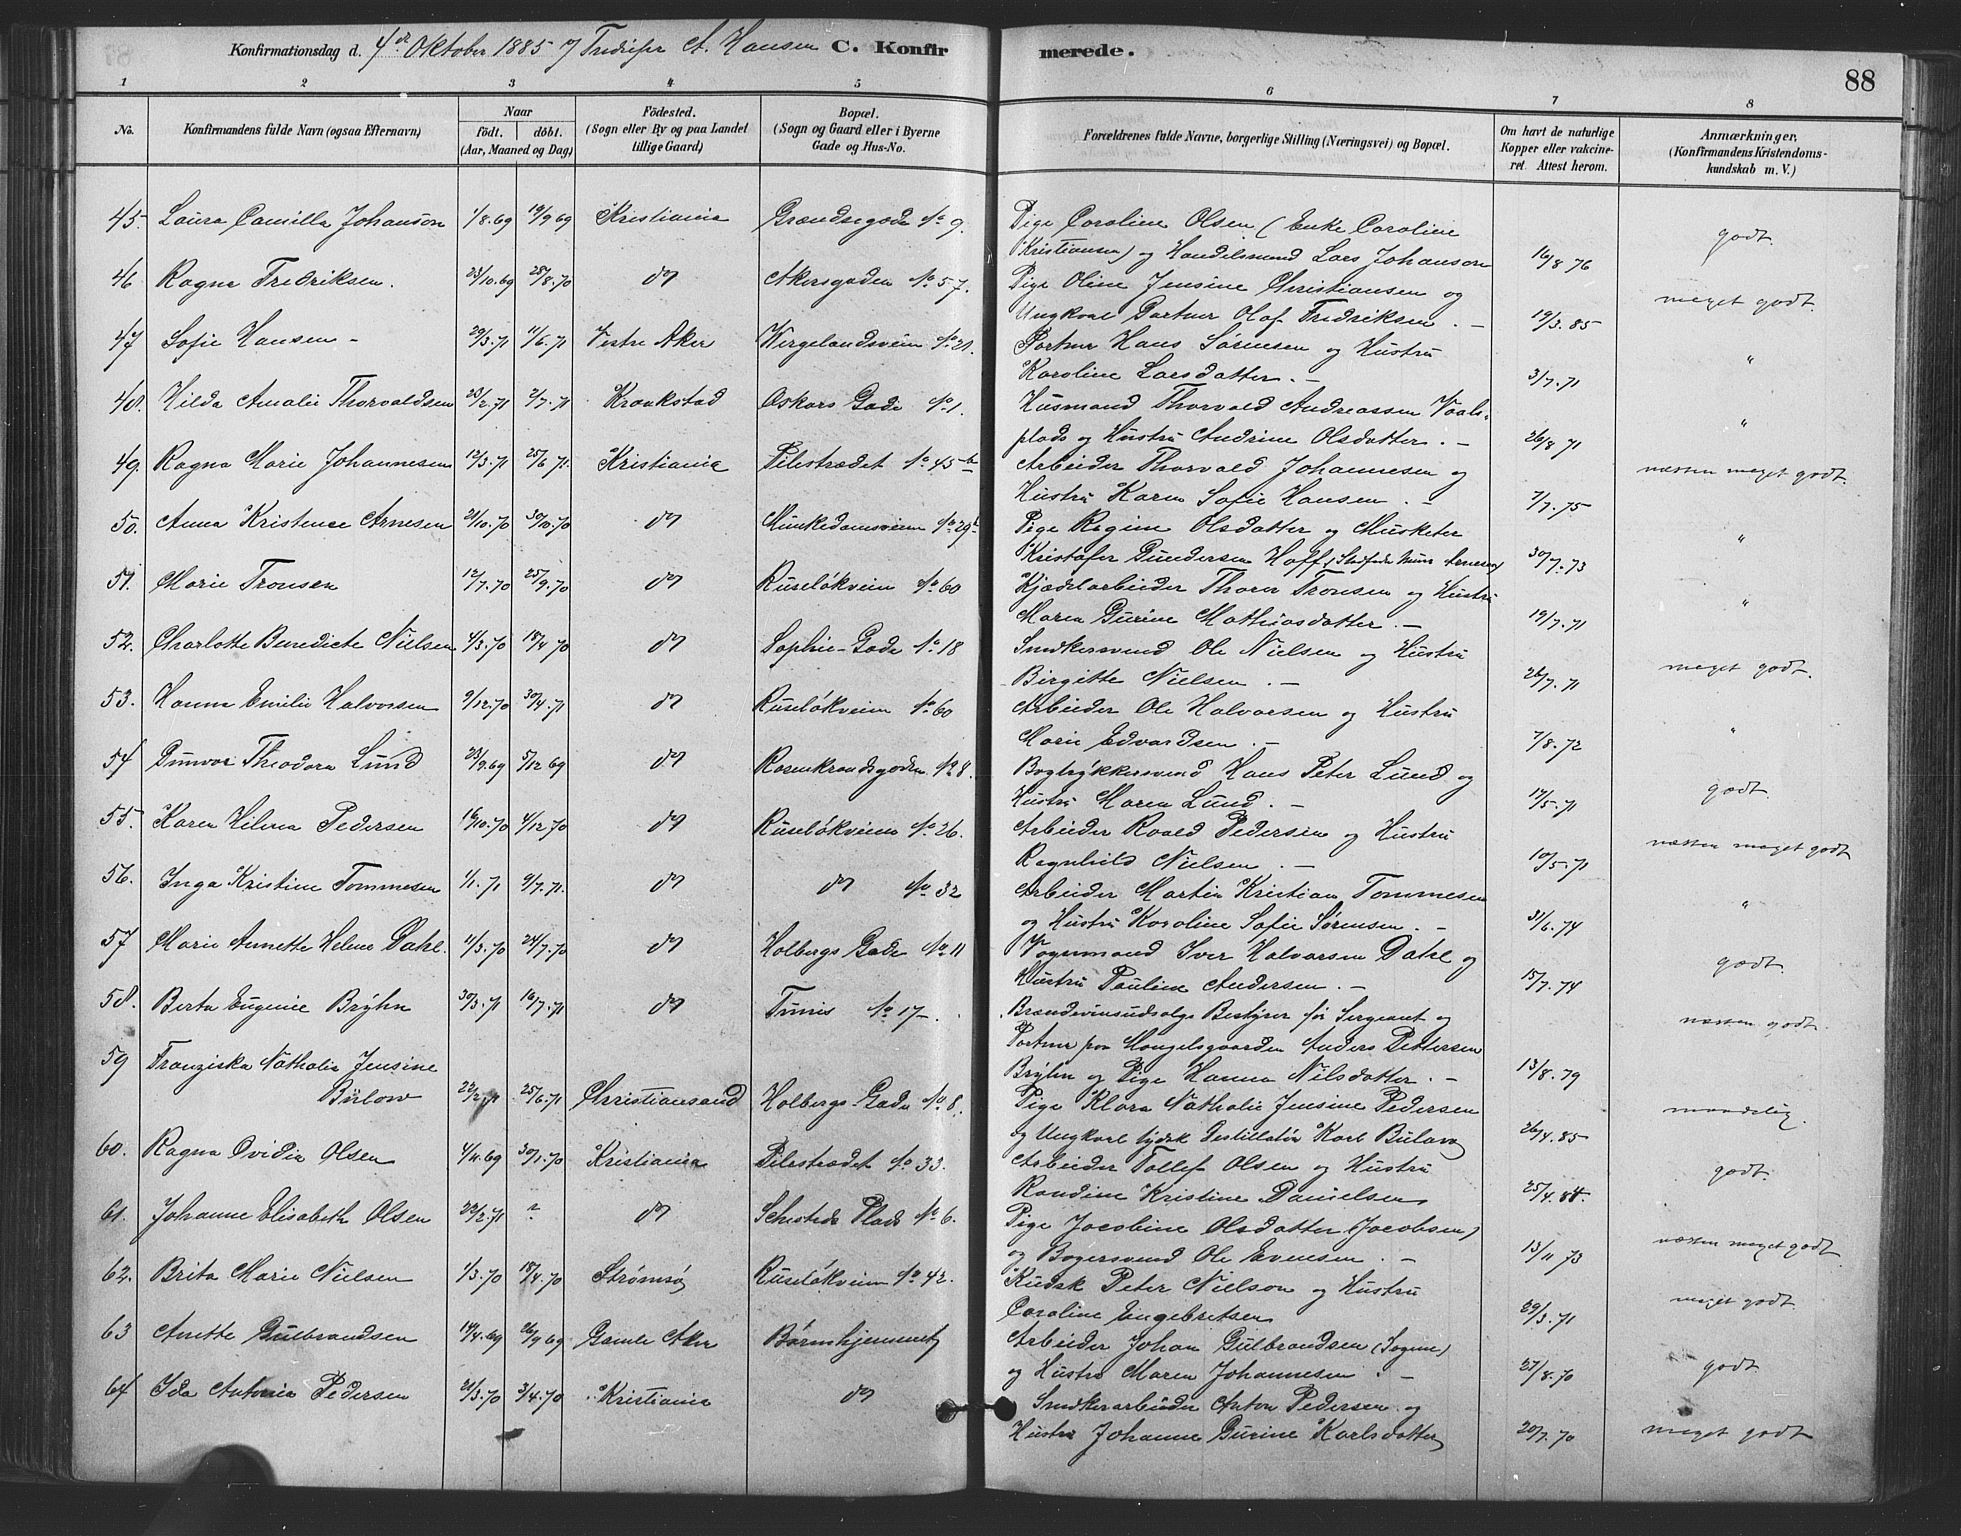 Konfirmationsdag d. 4de Oktober 1885 A. Hansen C. Konfir merede.
88
1 2 3 4 5 6 7 8
No. Konfirmandens fulde Navn (ogsaa Efternavn) Naar födt. döbt. (Aar, Maaned og Dag) Födested. (Sogn eller By og paa Landet tillige Gaard) Bopæl. (Sogn og Gaard eller i Byerne Gade og Hus-No. Forældrenes fulde Navne, borgerlige Stilling (Næringsvei) og Bopæl. Om havt de naturlige Kopper eller vakcineret Attest herom. Anmærkninger, (Konfirmandens Kristendomskundskab m. V.)
45. Laura Camilla Johanson 1/8.69 19/9 69 Kristiania Grændsegade No 9. Pige Caroline Olsen (Enke Caroline
Kristiansen) og Handelsmand Lars Johanson 16/8 76 godt.
46 Ragna Fredriksen. 23/10.69 28/8.70 do Akersgaden No 57. Pige Oline Jensine Christiansen og
Ungkarl Olaf Fredriksen. – 19/3.85 meget godt.
47 Sofie Hansen – 29/3.71 11/6.71 Vestre Aker Wergelandsveien No 21. Portner Hans Sørensen og Hustru
Karoline Larsdatter. – 3/7.71 "
48. Hilda Amalie Thorvaldsen 23/2.71 2/7.71 Kraakstad Oskars Gade No 1. Husmand Thorvald Andreassen Vaals-
plads og Hustru Andrine Olsdatter. – 26/8 71 "
49. Ragna Marie Johannesen 12/3.71 25/6 71. Kristiania Pilestrædet No 45 b Arbeider Thorvald Johannesen og
Hustru Karen Sofie Hansen. – 7/7.75 næsten meget godt.
50. Anna Kristence Arnesen 21/10.70 30/10.70 do Munkedamsveien No 29 b Pige Regine Olsdatter og Musketer
Kristofer Gundersen Hoff 30/7.73 "
51. Marie Tronsen 12/7.70 25/9.70 do Ruseløkveien No 60 Kjædelarbeider Thorer Tronsen og Hustru
Maren Gurine Mathiasdatter. – 19/7.71 "
52. Charlotte Benedicte Nielsen 4/3.70 18/4 70 do Sophie-Gade No 18 Snedkersvend Ole Nielsen og Hustru
Birgitte Nielsen. – 26/7.71 meget godt.
53. Hanna Emilie Halvorsen 9/12.70 30/4.71 do Ruseløkveien No 60 Arbeider Ole Halvorsen og Hustru
Marie Edvardsen. – 7/8.72 "
54 Gunvor Theodora Lund 23/9.69 5/12 69 do Rosenkrandsgaden No 8. Bogtrykkersvend Hans Peter Lund og
Hustru Maren Lund. – 17/5.71 godt
55. Karen Helena Pedersen 16/10.70 4/12.70 do Ruseløkveien No 26. Arbeider Roald Pedersen og Hustru
Ragnhild Nielsen. – 10/5.71 næsten meget godt
56. Inga Kristine Tommesen 1/1.71 9/7.71. do do No 32 Arbeider Martin Kristian Tommesen
og Hustru Karoline Sofie Sørensen. – 31/6.74 "
57 Marie Annette Helene Dahl. 11/3.70 24/7.70 do Holbergs Gade No 11 Vognmand Iver Halvorsen Dahl og
Hustru Pauline Andersen. – 15/7.74 godt.
58. Berta Eugenie Bryhn 30/3.71 16/7.71 do Tunis No 17. Brændevinsudsalgs Bestyrer før Sergeant og
Portner paa Mangelsgaarden Anders Pettersen
Bryhn og Pige Hanna Nilsdatter. – 13/8.79 næsten godt.
59 Franziska Nathalia Jensine
Bülow 22/2.71 25/6.71 Christiansand Holbergs-Gade No 8. Pige Klara Nathalie Jensine Pedersen
og Ungkarl tydsk Destillatør Karl Bülow 26/4.85 maadelig.
60. Ragna Ovidia Olsen 4/11.69 30/1.70 Kristiania Pilestrædet No 33. Arbeider Tollef Olsen og Hustru
Randine Kristine Danielsen 25/4.84. godt.
61. Johanne Elisabeth Olsen 22/2.71 ? do Schesteds Plads No 6. Pige Jacobine Olsdatter (Jacobsen)
og Bagersvend Ole Evensen. – 13/11 73 næsten meget godt.
62. Brita Marie Nielsen 1/3.70 18/4.70 Strømsø Ruseløkveien No 42. Kudsk Peter Nielson og Hustru
Caroline Engebretsen 29/3.71 meget godt.
63 Anette Gulbrandsen 14/4.69 26/9 69 Gamle Aker Børnehjemmet Arbeider Johan Gulbrandsen
og Hustru Maren Johannesen. – 27/8.70 godt.
64 Ida Antonia Pedersen 21/3.70 3/4.70 Kristiania do Snedkerarbeider Anton Pedersen og
Hustru Johanne Gurine Karlsdatter 20/7.70 meget godt